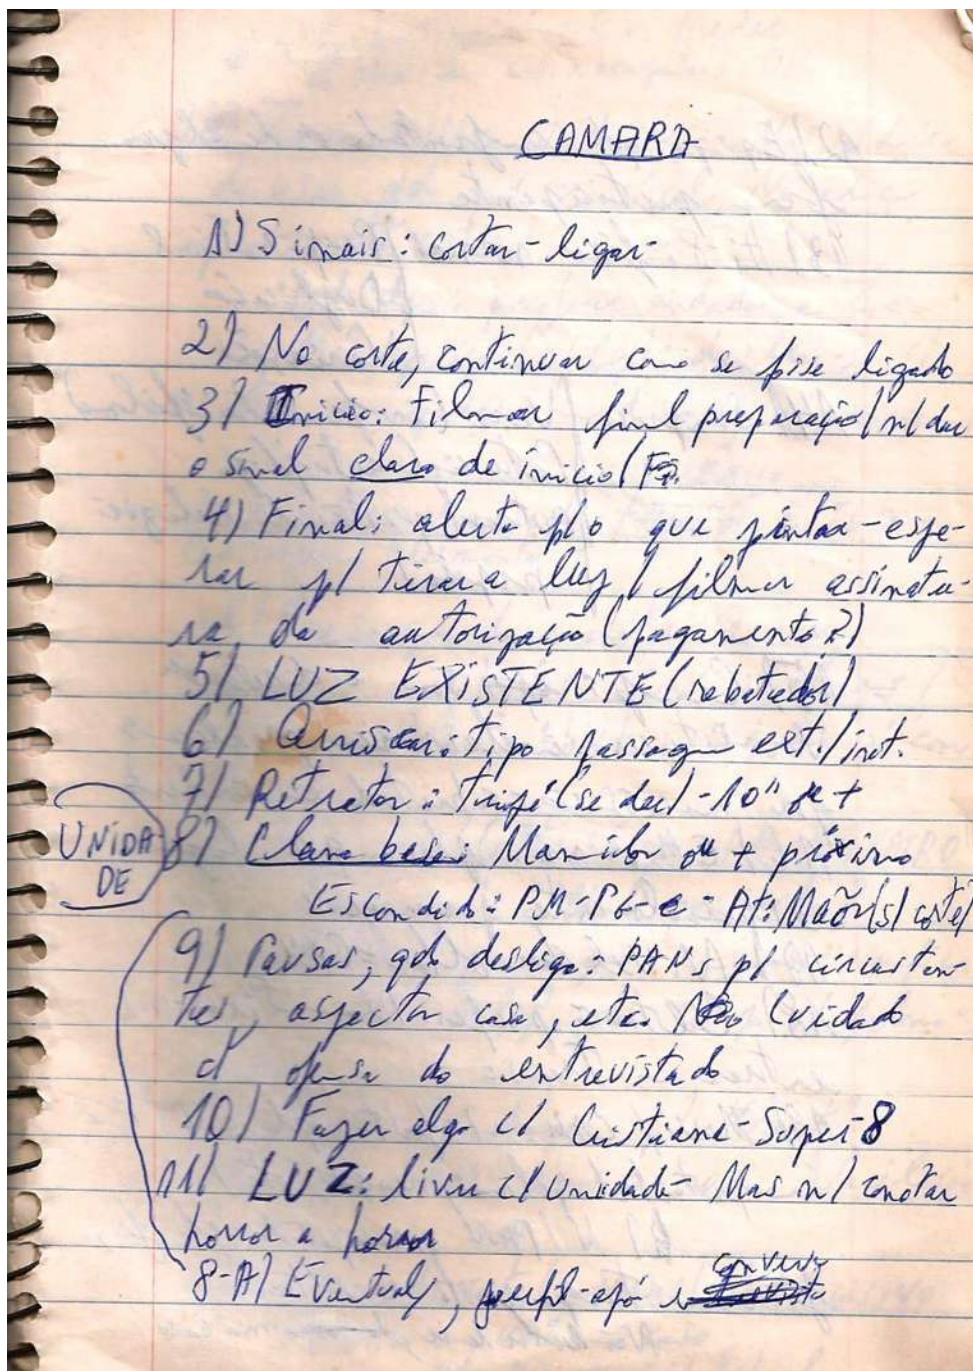 CAMARA
1) Sinais: cortar-ligar-
2) No corte, continuar como se fosse ligado
3) Início: Filmar final preparação/n/dar
o sinal claro de início/
4) Final: alerta p/o que pintar-espe-
rar p/ tirar a luz / filmar assinatu-
ra da autorização (pagamento?)
5) LUZ EXISTENTE (rebatedor)
6) Arriscar: tipo passagem ext./int.
7) Retrator: tripé (se der) -10" ou +
UNIDA
DE
8) Clara base: ou + próximo
Escondido: PM-PG-e-At: Mãos (s/ corte)
9) Pausas, qdo desliga: PANs p/ circustan-
tes, aspectos casa, etc. Cuidado
c/ ofensa do entrevistado
10) Fazer algo c/ Cristiane-Super-8
11) LUZ: livre c/ unidade- Mas n/ conotar
horror a horror
8-A) Eventual/, perfil-após conversa